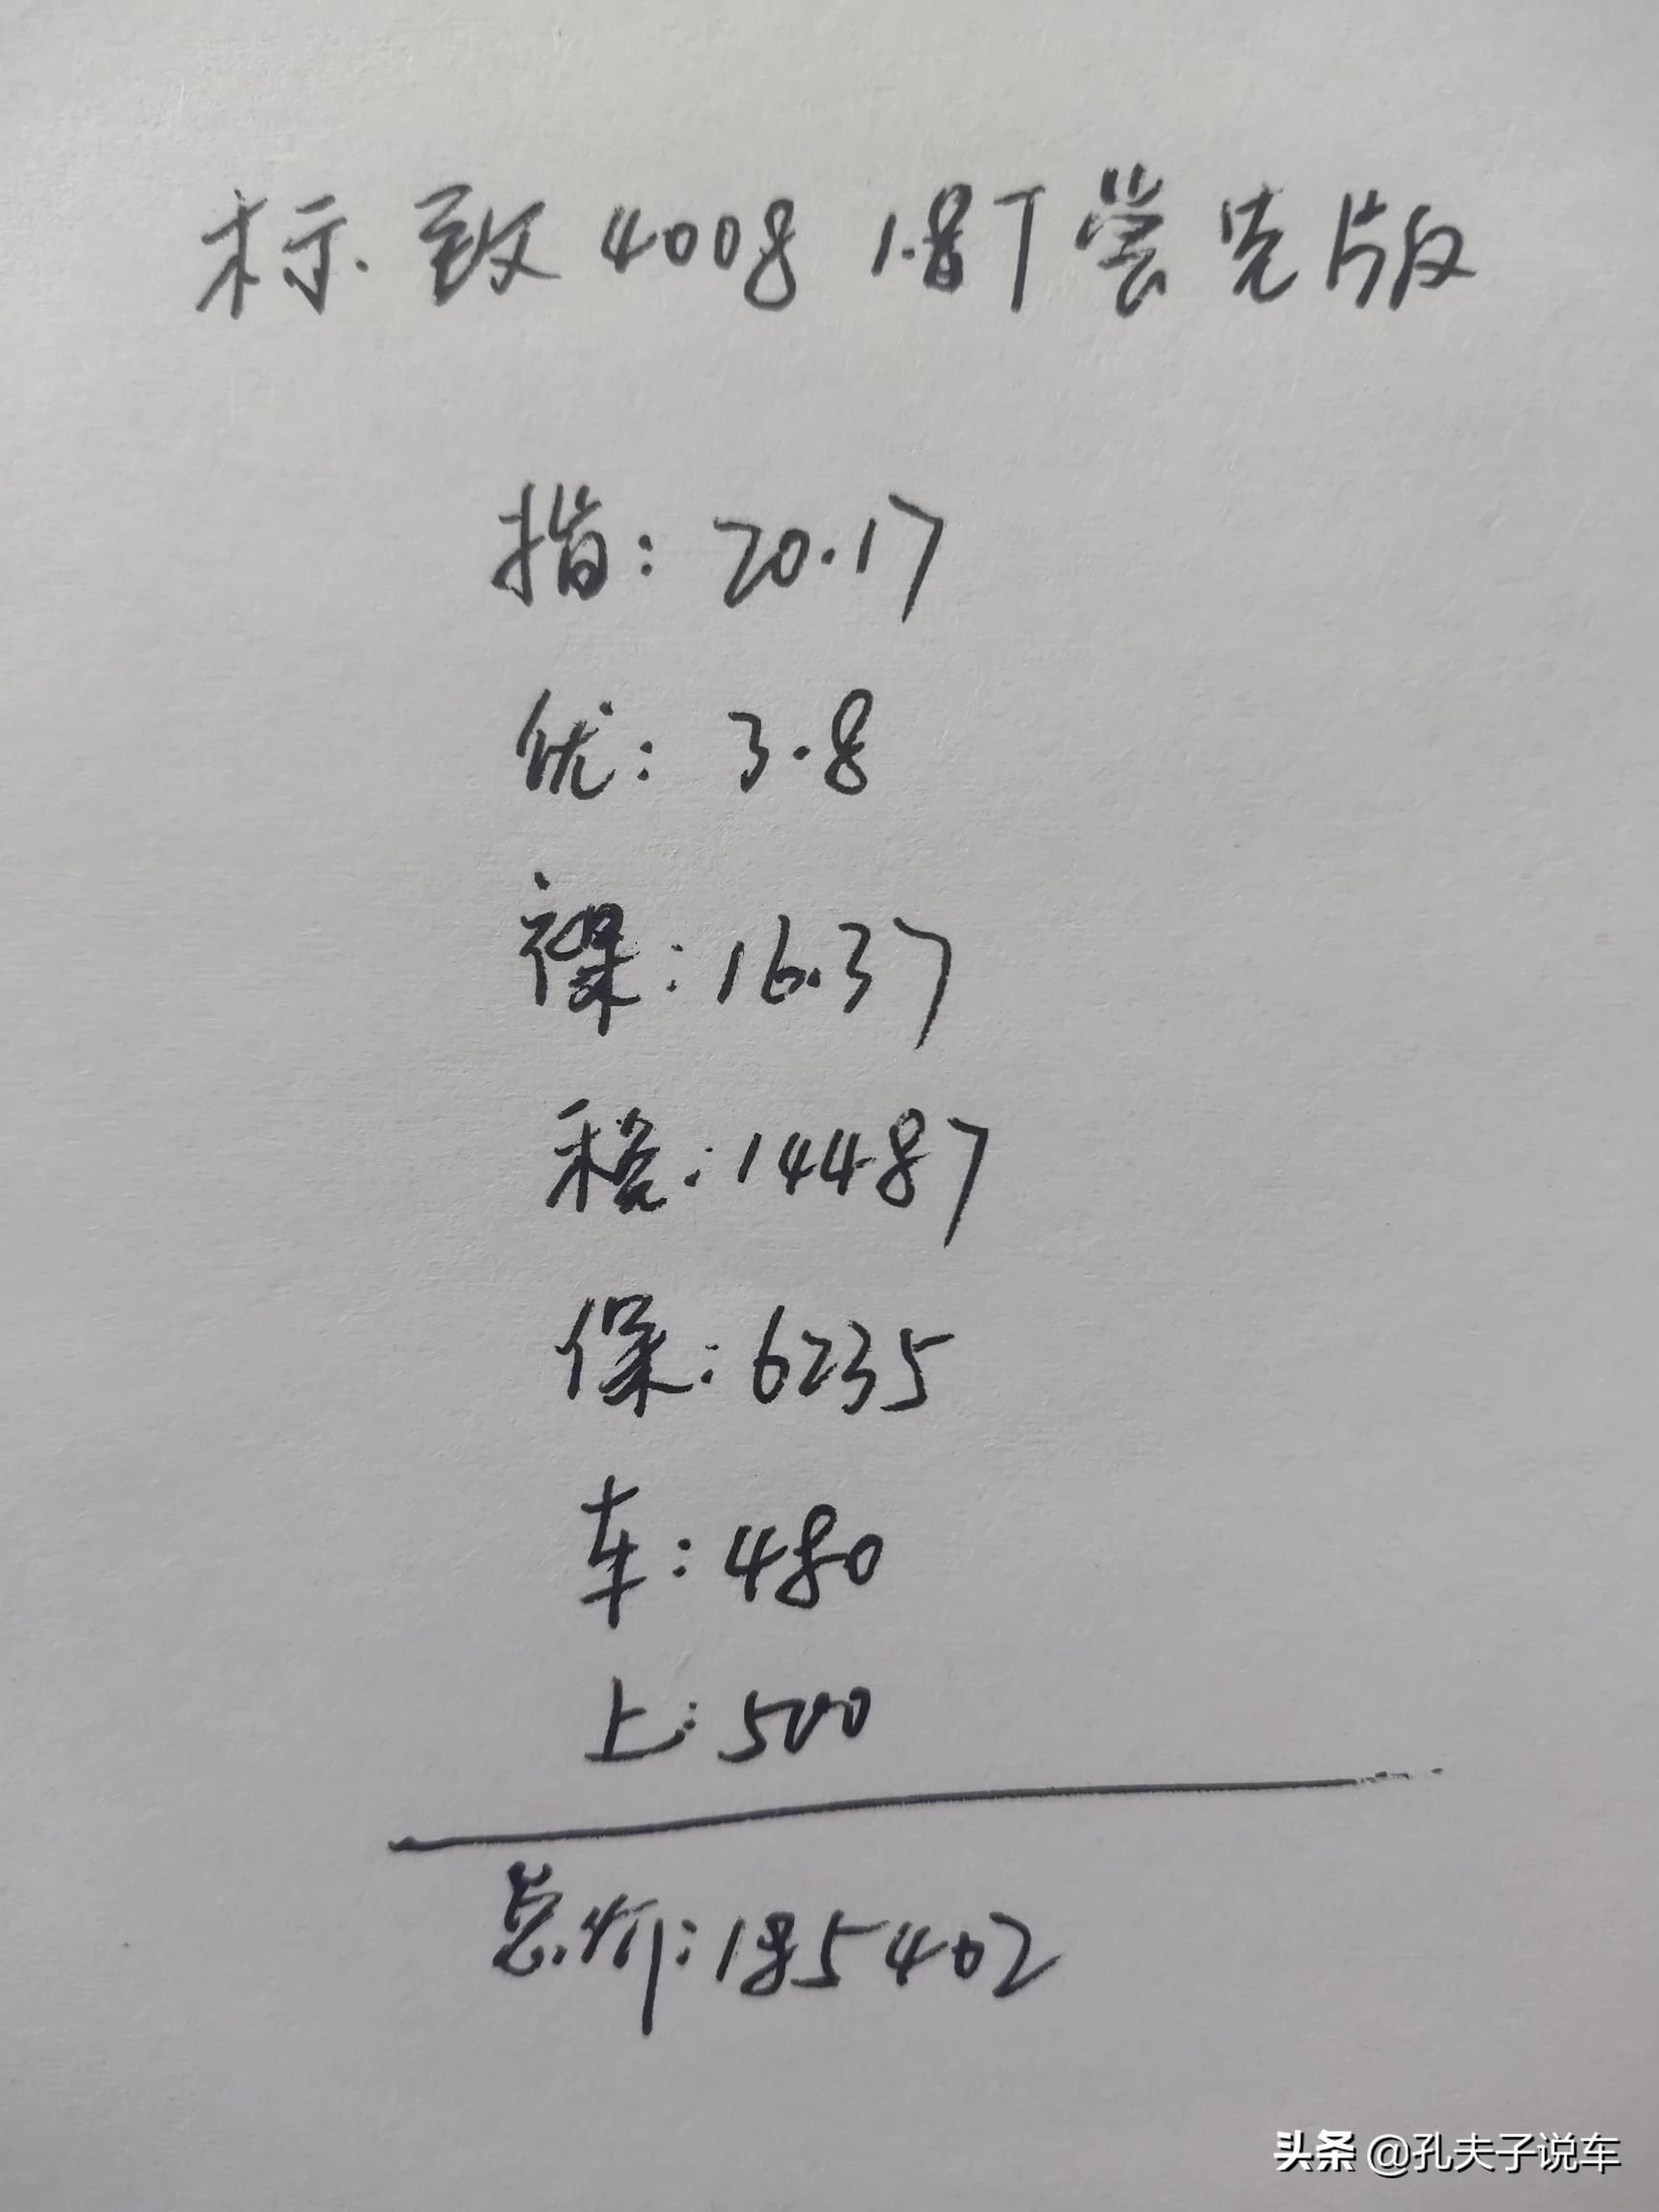 标致4008 1.8T尝先版
指:20.17
优:3.8
裸:16.37
税:14487
保:6235
车:480
上:500
总价:185402
头条 @孔夫子说车